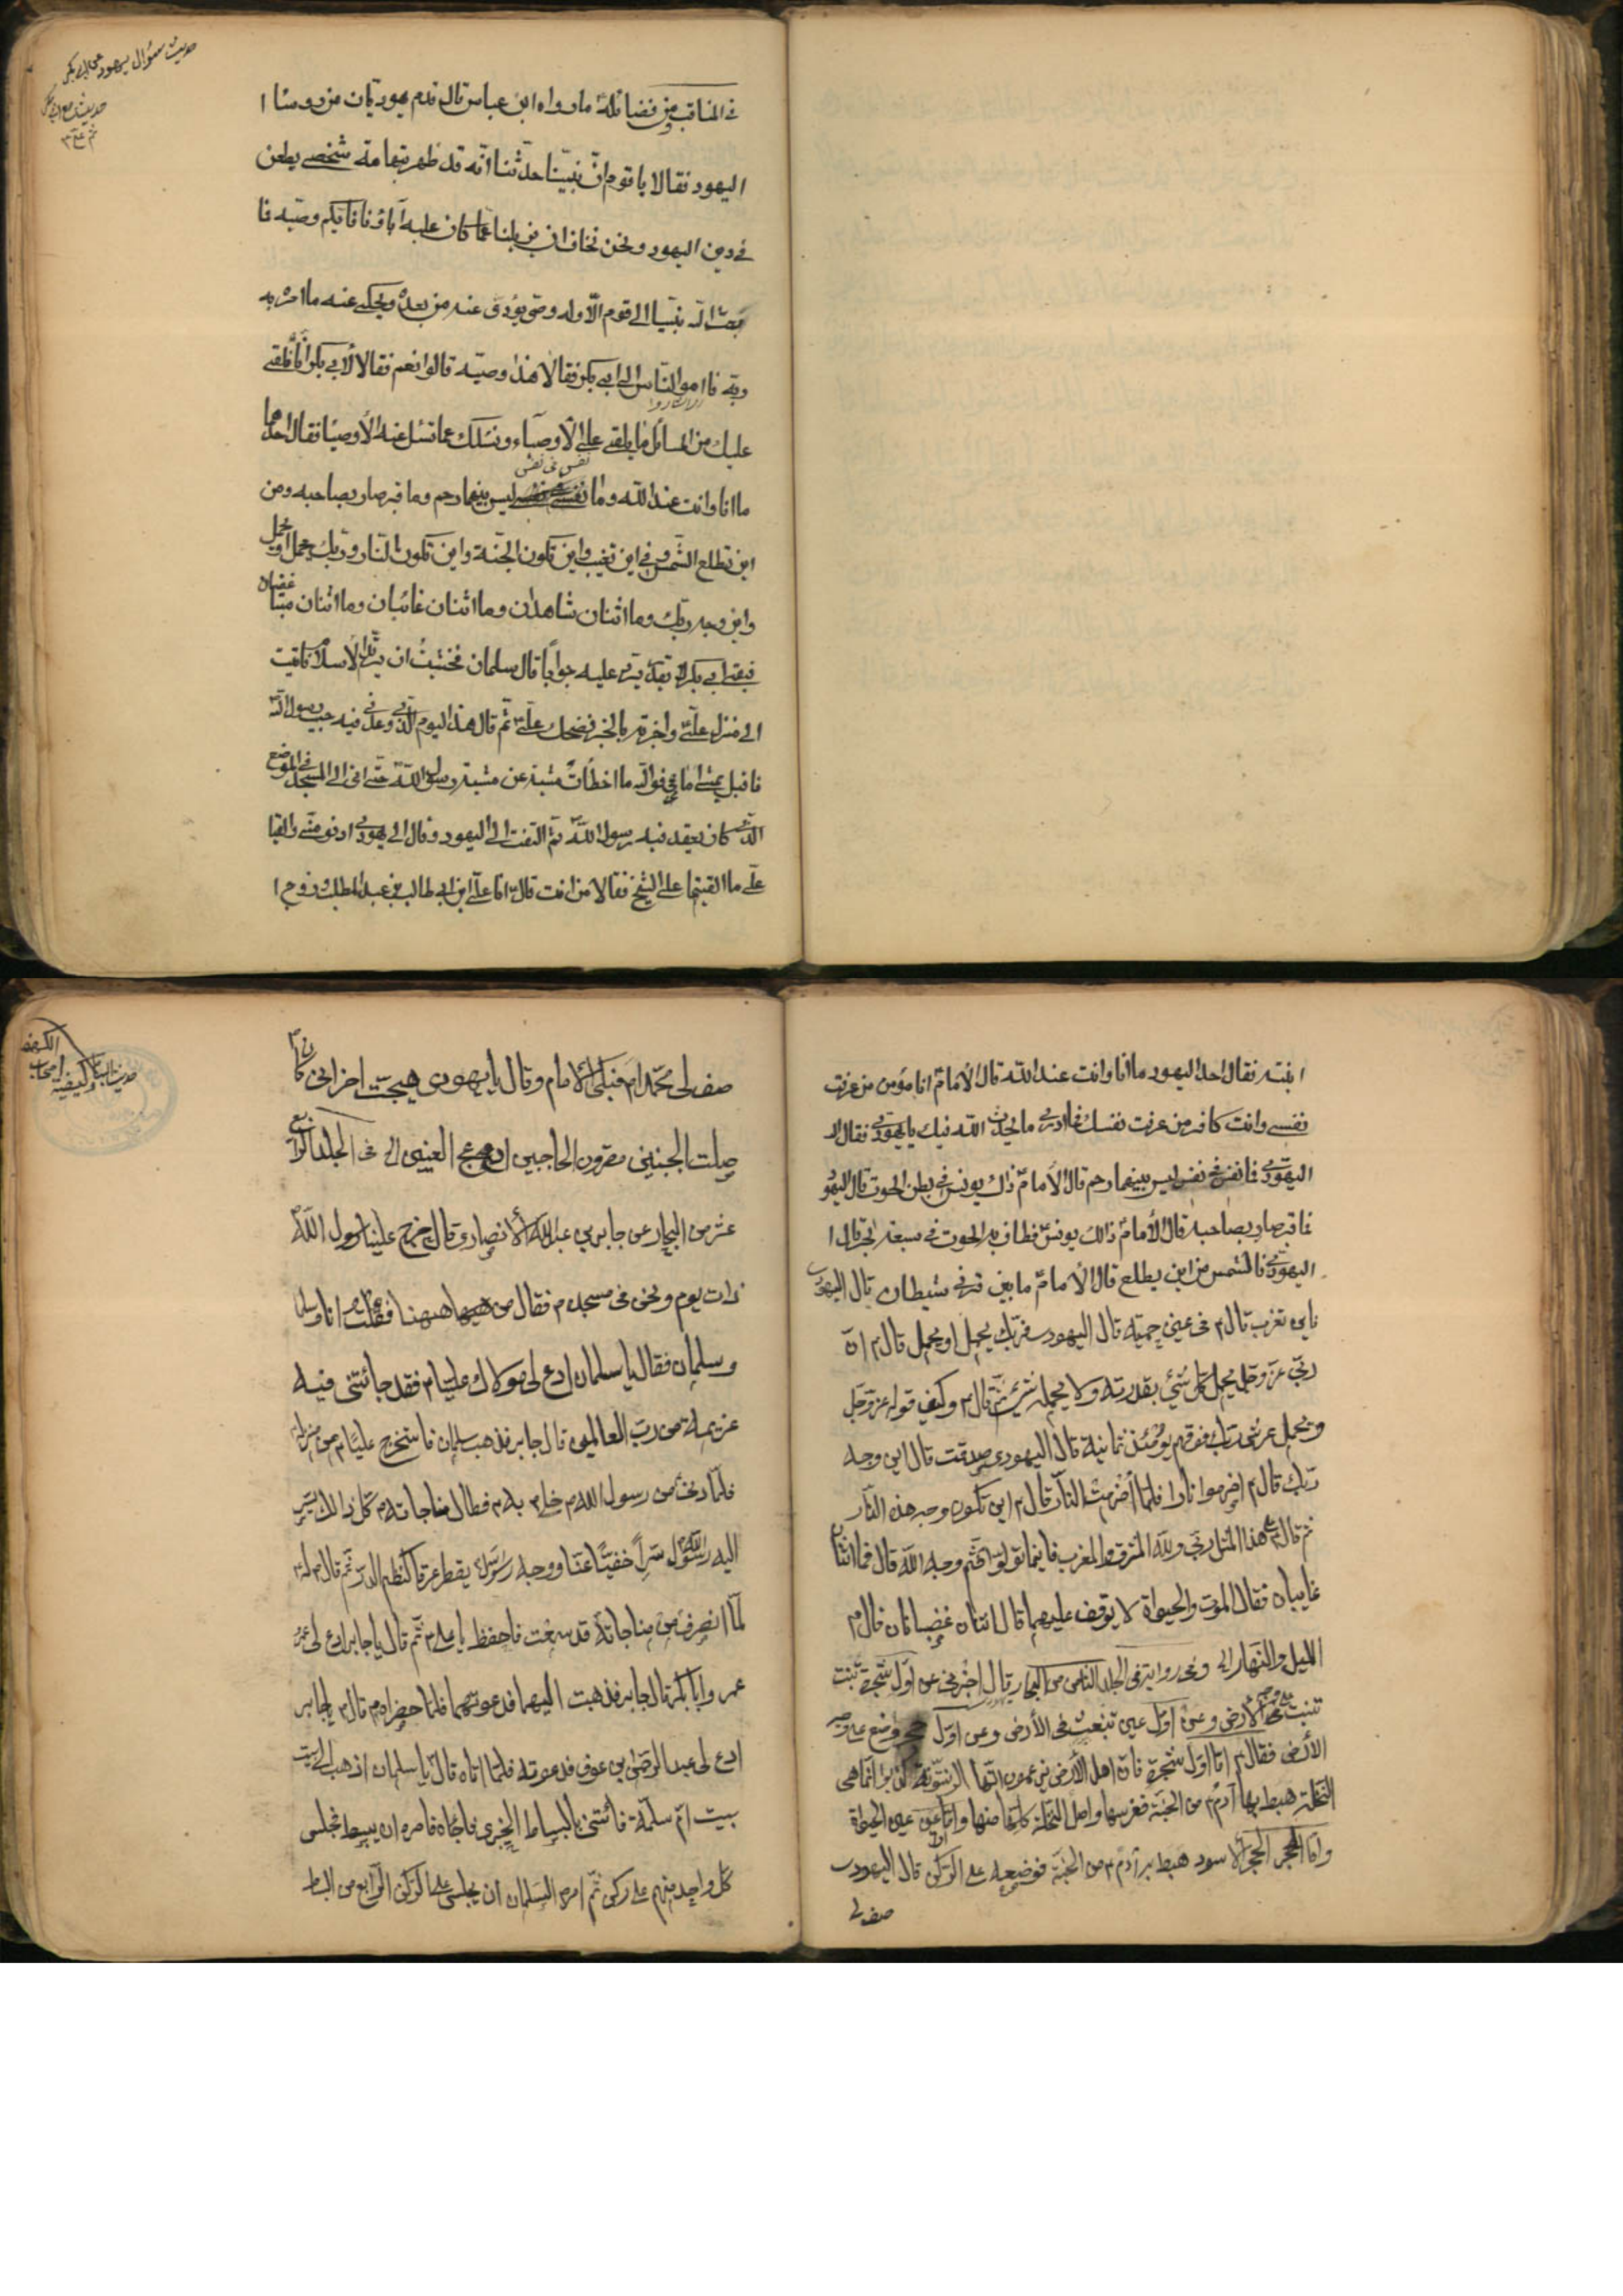 حديث سؤال يهود عن ابى بكر
فى المناقب و من فضائله ما رواه ابن عباس قال قدم يهوديان من رؤساء ا
اليهود فقالا يا قوم انّ نبيّنا حدثنا انّه قد ظهر بتهامة شخص يطعن
فى دين اليهود ونحن نخاف ان يزيلنا عما كان عليه آباؤنا فايّكم وصيّه فا
بعث الله نبيّا الى قوم الّا وله وصى يؤدى عنه من بعده ويحكى عنه ما امر به
ربّه فاموا الناس الى ابى بكر فقالا هذا وصيّه قالوا نعم فقالا لأبى بكر انّا نلقى
اشاروا
عليك من المسائل ما يلقى على الأوصياء ونسئلك عما تسئل عنه الأوصياء فقال احدهما
نفس فى نفس
ما انا وانت عند الله وما ليس بينهما رحم وما قبر صار بصاحبه ومن
اين تطلع الشمس وفى اين تغيب واين تكون الجنة واين تكون النار وربك يحمل او يحمل
واين وجه ربك وما اثنان شاهدان وما اثنان غائبان وما اثنان متباغضان
فبقى ابى بكر لا يرد عليه جوابا قال سلمان فخشيت ان يرتد الأسلام فاتيت
الى منزل علىّ واخبرته بالخبر فضحك علىّ ثم قال هذا اليوم الذى وعدنى فيه حبيب رسول الله
فاقبل يمشى امامى فوالله ما اخطأت مشيته عن مشية رسول الله حتى اتى الى المسجد فى الموضع
الذى كان يقعد فيه رسول الله ثم التفت الى اليهود وقال الى يهودى ادنو منّى والقيا
علىّ ما القيتما على الشيخ فقالا من انت قال انا علىّ ابن ابى طالب بن عبد المطلب وزوج ا
ابنته فقال احد اليهود ما انا وانت عند الله قال الأمام انا مؤمن من عرفت
نفسى وانت كافر من عرفت نفسك فما ادرى ما يحدث الله فيك يا يهودى فقال له
اليهودى فما نفس فى نفس ليس بينهما رحم قال الأمام ذاك يونس فى بطن الحوت قال اليهو
فما قبر صار بصاحبه قال الأمام ذالك يونس فطاف به الحوت فى سبعة ابحر قال ا
اليهودى فالشمس من اين يطلع قال الأمام ما بين قرنى شيطان قال اليهود
فاين تغرب قال م فى عين حمئة قال اليهود فربك يحمل او يحمل قال م انّ
ربى عز وجل يحمل كل شئ بقدرته ولا يحمله شئ قال م وكيف قوله عز وجل
ويحمل عرش ربك فوقهم يومئذ ثمانية قال اليهودى صدقت قال اين وجه
ربك قال م اضرموا نارا فلما أضرمت النار قال م اين تكون وجه هذه النار
ثم قال م هذا المثل ربى ولله المشرق والمغرب فاينما تولوا فثم وجه الله قال فما اثنان
غايبان فقال الموت والحيوة لا يوقف عليهما قال اثنان غضبانان قال م
الليل والنهار الى وفى رواية فى الجلد الثامن من البحار قال اخبرنى عن اوّل شجرة نبت
تنبت على الأرض وعن اوّل عين تنبعث فى الأرض وعن اوّل حجر وضع على وجه
الأرض فقال م امّا اوّل شجرة فانّ اهل الأرض يزعمون انّها الزيتونة كذبوا انّما هى
النخلة هبط بها آدم م من الجنة فغرسها واصل النخلة كلها منها وامّا عين عين الحيوة
وامّا الحجر الحجر الاسود هبط به آدم م من الجنة فوضعه على الركن قال اليهود
صف لى
الكهف
صف لى محمّد ام فبكى الأمام وقال يا يهودى هيجت احزانى كان م
صلت الجبين مقرون الحاجبين ادعج العينين الى فى الجلد الرابع
عشر من البحار عن جابر بن عبد الله الأنصارى قال خرج علينا رسول الله
ذات يوم ونحن فى مسجد م فقال من ههنا فقلت انا
وسلمان فقال يا سلمان ادع لى مولاك عليا م فقد جائتنى فيه
عزيمة من رب العالمين قال جابر فذهب سلمان فاستخرج عليّا م من منزله
فلمّا دنى من رسول الله م خلا به م فطال مناجاته م كل ذالك يسر
اليه رسول الله سرّا خفيّا عنّا ووجه رسول يقطر عرقا كنظم الدر ثم قال م له
لمّا انصرف من مناجاته قد سمعت فاحفظ يا على م ثم قال يا جابر ادع لى
عمر وابا بكر قال جابر فذهبت اليهما فدعوتهما فلما حضراه م قال م يا جابر
ادع لى عبد الرحمن بن عوف فدعوته فلما اتاه قال يا سلمان اذهب الى بيت
بيت ام سلمة فائتنى بالبساط الخيبرى فجائه فامره ان يبسط فجلس
كل واحد منهم على ركن ثم امر السلمان ان يجلس على الركن الرابع من البساط